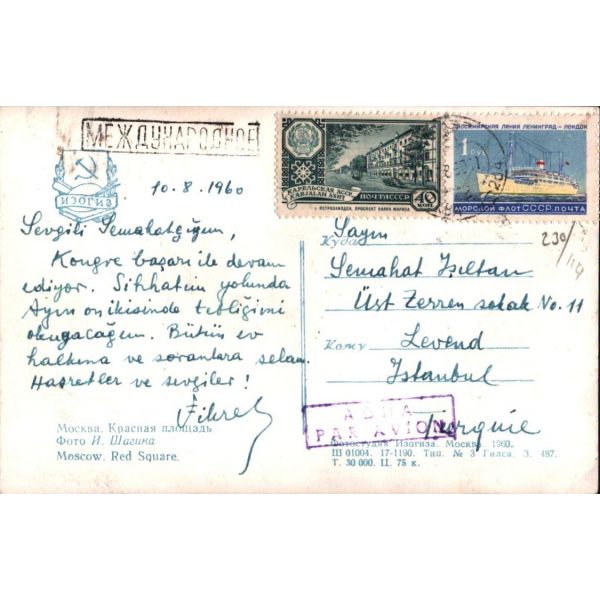 МЕЖДУНАРОДНОЕ
ИЗОГИЗ
10.8.1960
Sevgili Semahatçığım,
Kongre başarı ile devam
ediyor. Sıhhatim yolunda
Ayın on ikisinde tebliğimi
okuyacağım. Bütün ev
halkına ve soranlara selam.
Hasretler ve sevgiler!
Fikret
Москва. Красная площадь
Фото И. Шагина
Moscow. Red Square.
КАРЕЛЬСКАЯ АССР
KARJALAN ASNT
ПОЧТА СССР
40 КОП.
г. ПЕТРОЗАВОДСК. ПРОСПЕКТ КАРЛА МАРКСА
ПАССАЖИРСКАЯ ЛИНИЯ ЛЕНИНГРАД – ЛОНДОН
1
МОРСКОЙ ФЛОТ СССР. ПОЧТА
230/
Куда
Sayın
Semahat Işıltan
Üst Zerren sokak No. 11
Кому
Levend
Istanbul
Turquie
АВИА
PAR AVION
Фотостудия Изогиза. Москва. 1960.
Ш 01004. 17-1190. Тип. № 3 Гилса. З. 487.
Т. 30 000. Ц. 75 к.